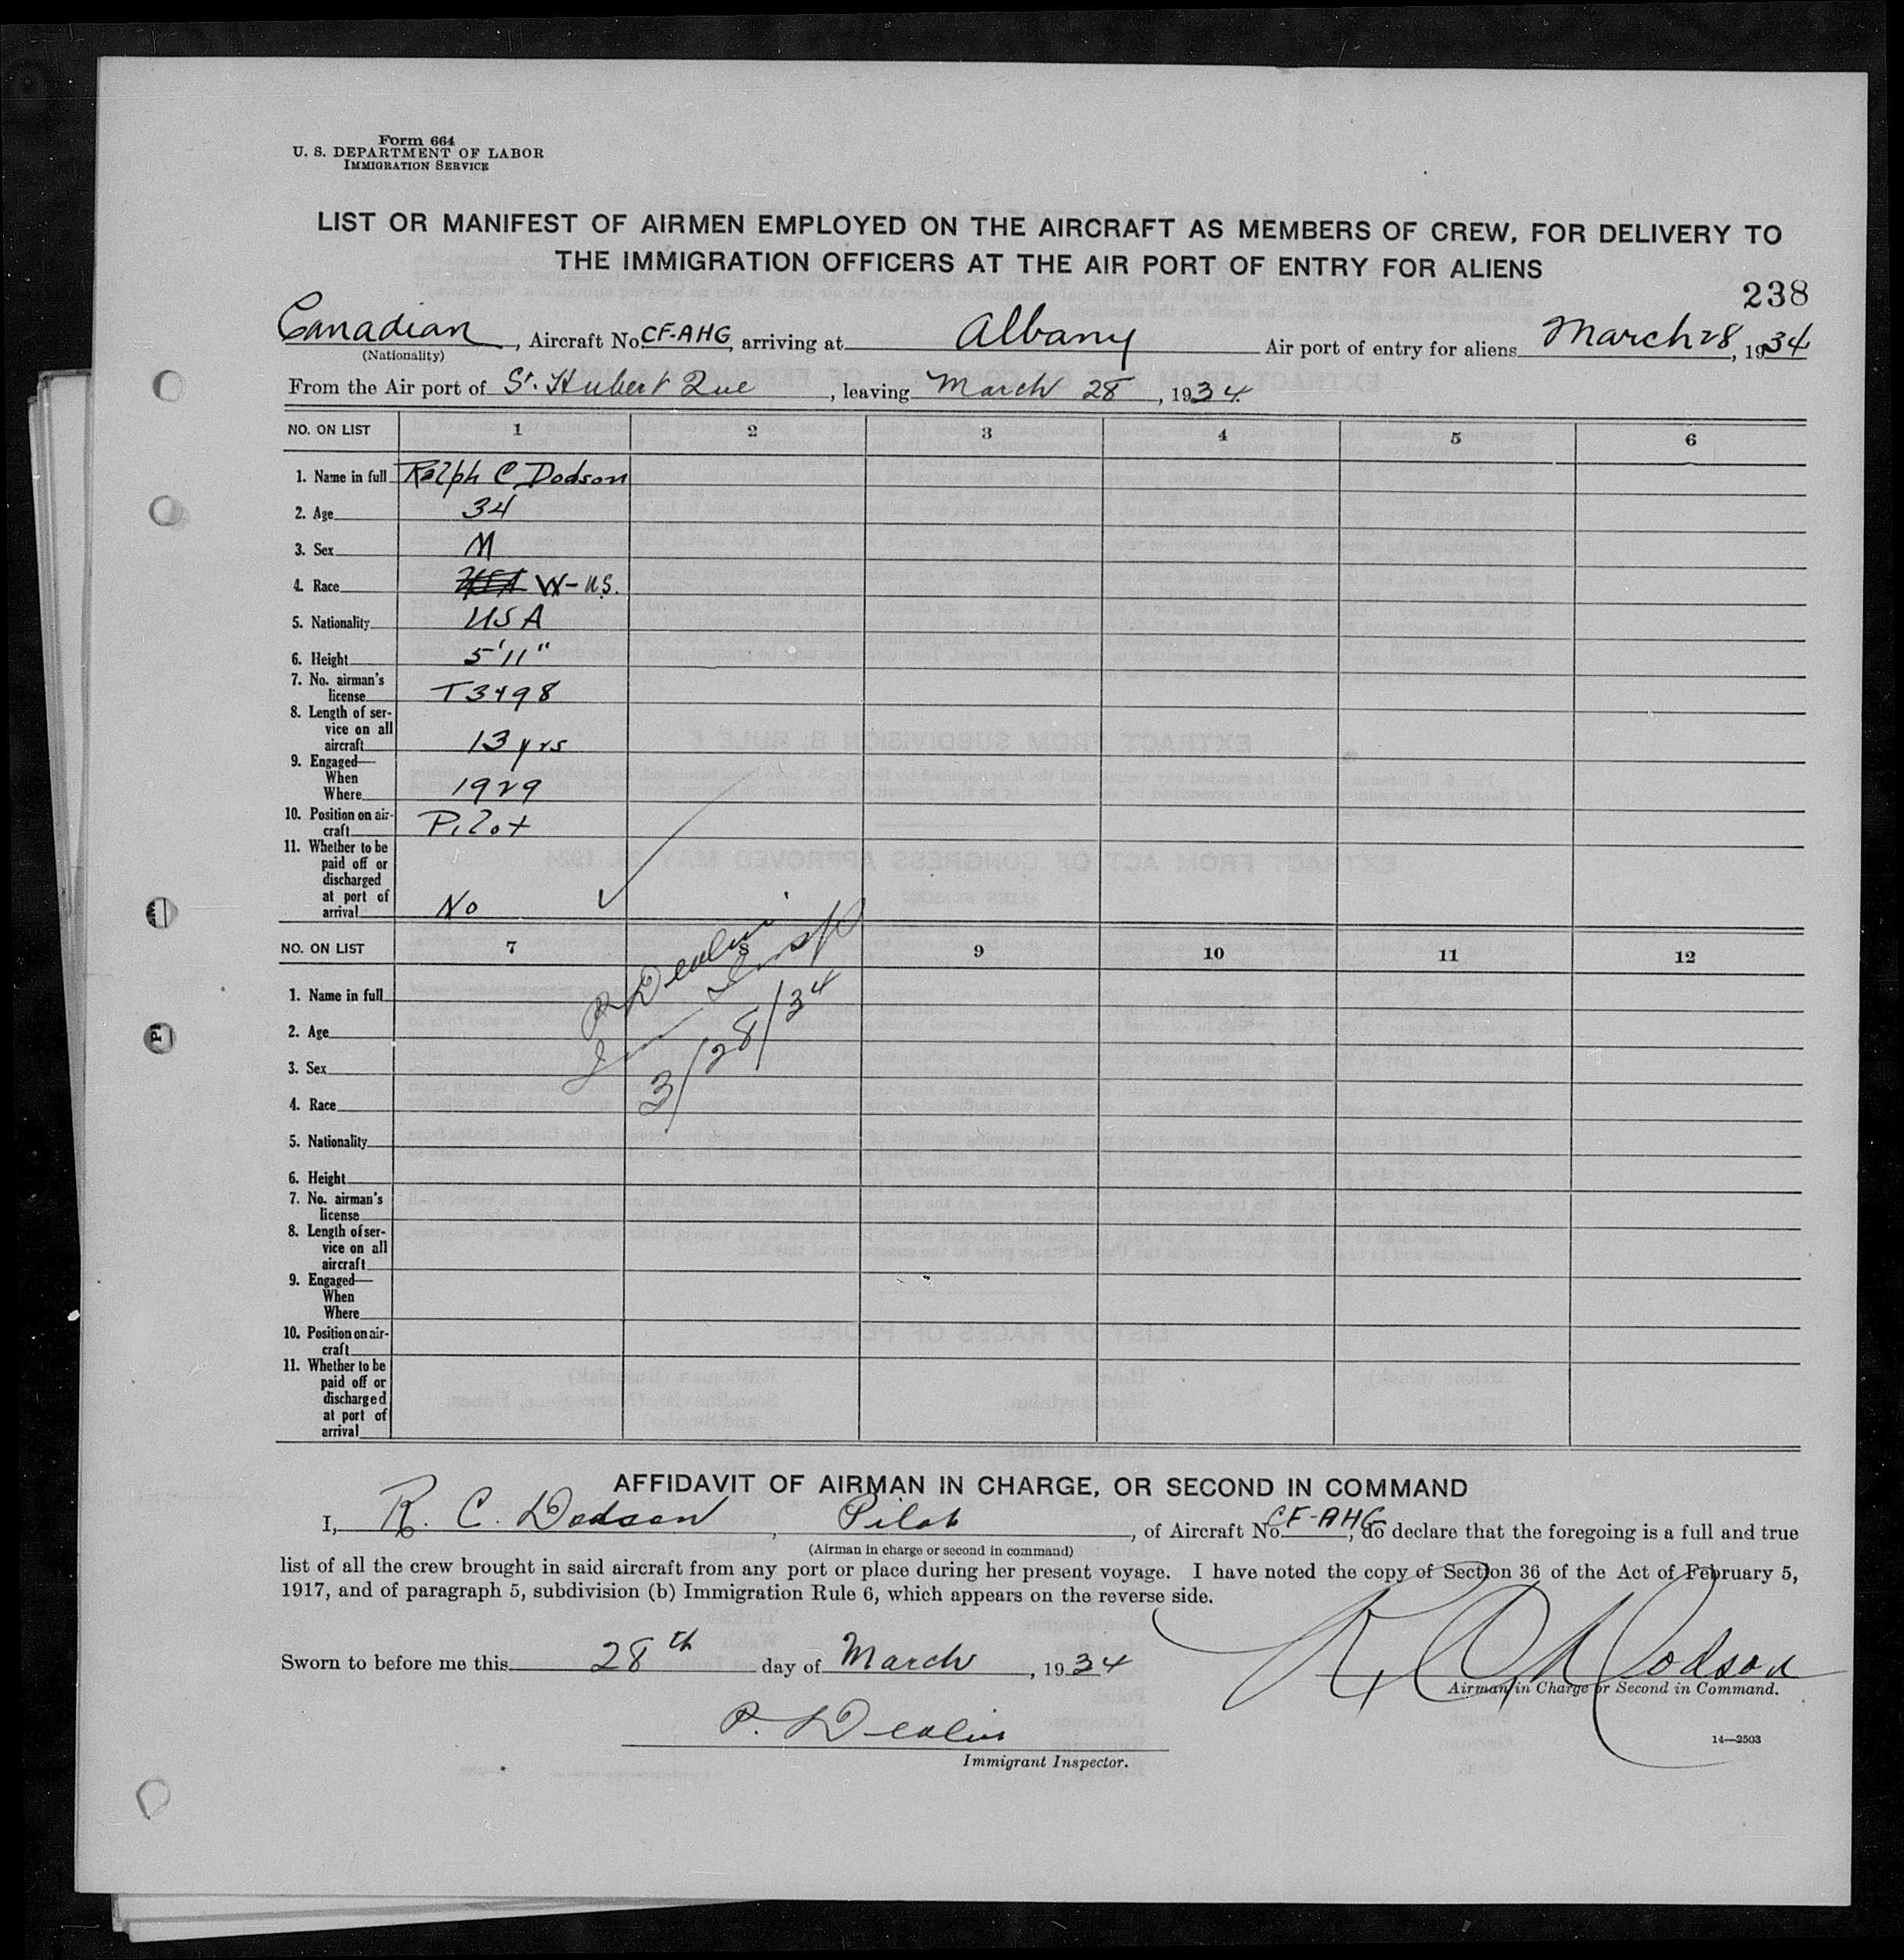 Form 664
U. S. DEPARTMENT OF LABOR
IMMIGRATION SERVICE
LIST OR MANIFEST OF AIRMEN EMPLOYED ON THE AIRCRAFT AS MEMBERS OF CREW, FOR DELIVERY TO
THE IMMIGRATION OFFICERS AT THE AIR PORT OF ENTRY FOR ALIENS
238
Canadian, Aircraft No. CF-AHG, arriving at Albany Air port of entry for aliens March 28, 1934
(Nationality)
From the Air port of St. Hubert Que, leaving March 28, 1934
NO. ON LIST 1 2 3 4 5 6
1. Name in full Ralph C Dodson
2. Age 34
3. Sex M
4. Race W-U.S.
5. Nationality USA
6. Height 5'11"
7. No. airman's
license T3498
8. Length of ser-
vice on all
aircraft 13 yrs
9. Engaged—
When
Where 1929
10. Position on air-
craft Pilot
11. Whether to be
paid off or
discharged
at port of
arrival No
NO. ON LIST 7 8 9 10 11 12
P Dealin
Imm Insp
3/28/34
1. Name in full
2. Age
3. Sex
4. Race
5. Nationality
6. Height
7. No. airman's
license
8. Length of ser-
vice on all
aircraft
9. Engaged—
When
Where
10. Position on air-
craft
11. Whether to be
paid off or
discharged
at port of
arrival
AFFIDAVIT OF AIRMAN IN CHARGE, OR SECOND IN COMMAND
I, R. C. Dodson, Pilot, of Aircraft No. CF-AHG, do declare that the foregoing is a full and true
(Airman in charge or second in command)
list of all the crew brought in said aircraft from any port or place during her present voyage. I have noted the copy of Section 36 of the Act of February 5,
1917, and of paragraph 5, subdivision (b) Immigration Rule 6, which appears on the reverse side.
Sworn to before me this 28th day of March, 1934
R C Dodson
Airman in Charge or Second in Command.
P. Dealin
Immigrant Inspector.
14—2503